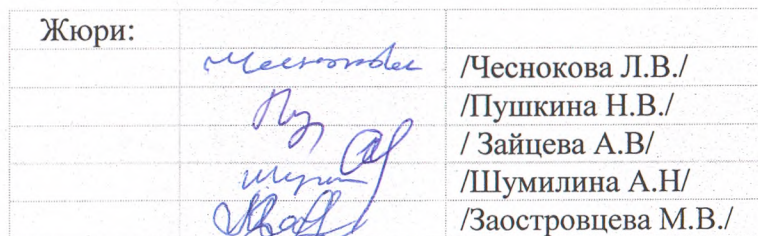 Жюри:
/Чеснокова Л.В./
/Пушкина Н.В./
/ Зайцева А.В/
/Шумилина А.Н/
/Заостровцева М.В./